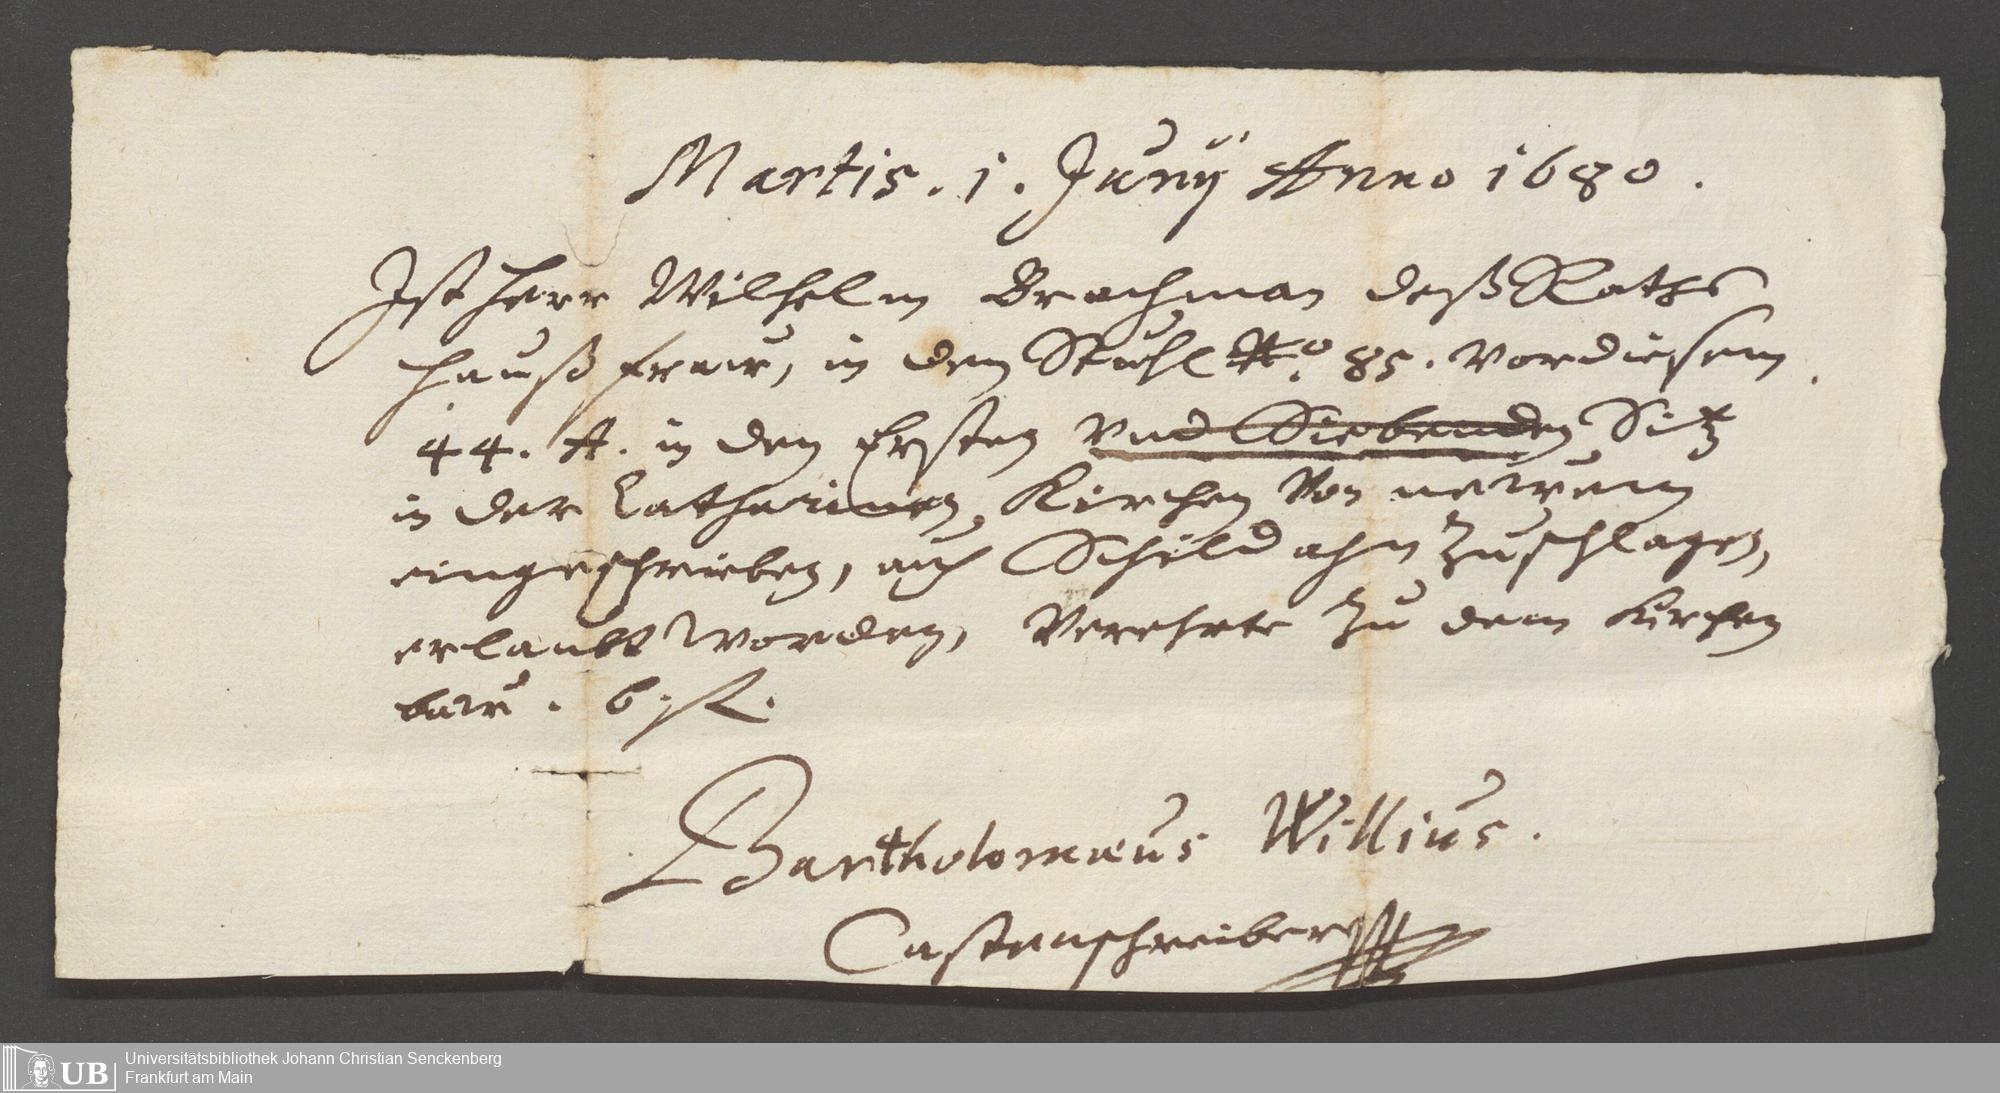 Martis. 1. Junÿ Anno 1680.
Ist Herr Wilhelm Brachman deß Raths
Haußfraw, in den Stuhl No. 85. Vor diesem
44. A. in den Ersten Vnd Siebenden Sitz
in der Catharinen Kirchen Von newem
eingeschrieben, auch Schild ahn Zuschlagen,
erlaubt worden, Verehrte Zu dem Kirchen
baw. 6. fl.
Bartholomæus Willius.
Castenschreiber
UB
Universitätsbibliothek Johann Christian Senckenberg
Frankfurt am Main